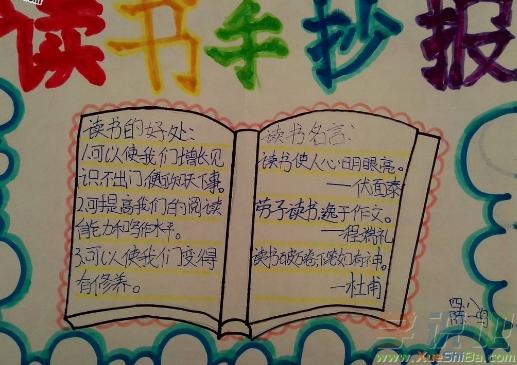 读书手抄报
读书的好处:
1.可以使我们增长见
识不出门便可知天下事。
2.可提高我们的阅读
能力和写作水平。
3.可以使我们变得
有修养。
读书名言:
读书使人心明眼亮。
——伏尔泰
劳于读书,逸于作文。
——程端礼
读书破万卷下笔如有神。
—杜甫
四.八
学识吧
www.XueShiBa.com